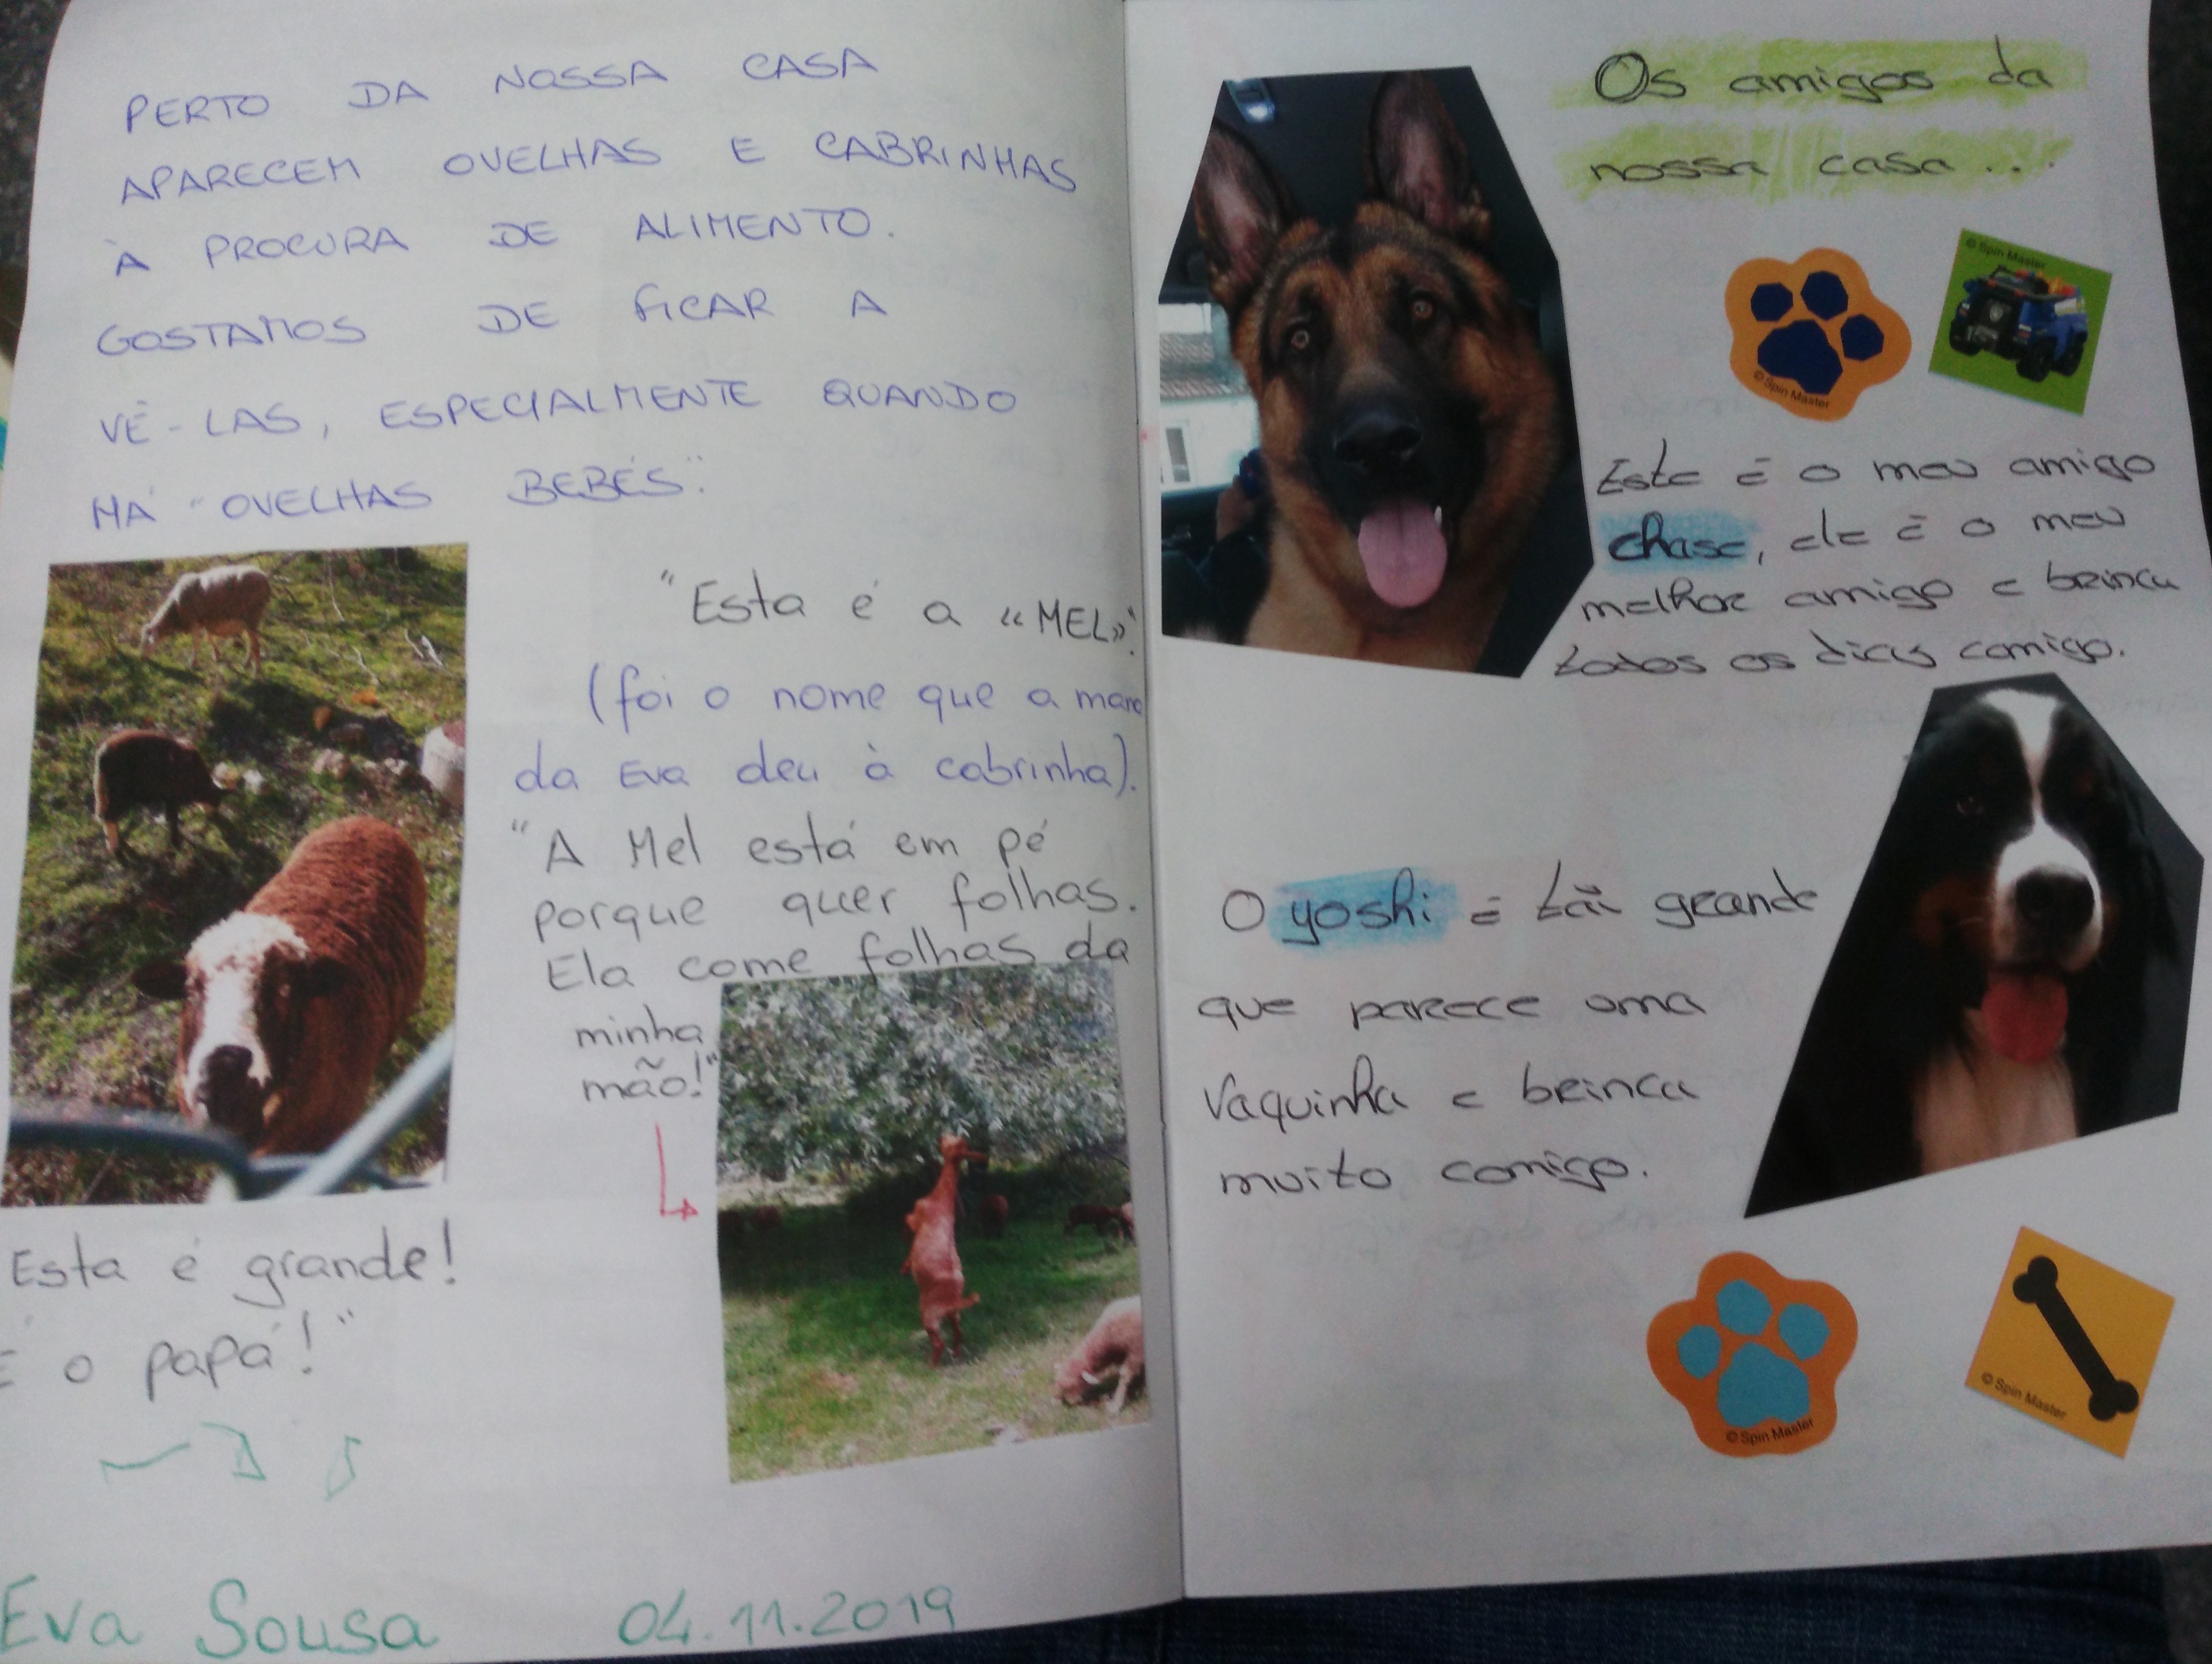 PERTO DA NOSSA CASA
APARECEM OVELHAS E CABRINHAS
À PROCURA DE ALIMENTO.
GOSTAMOS DE FICAR A
VÊ-LAS, ESPECIALMENTE QUANDO
HÁ "OVELHAS BEBÉS".
"Esta é a «MEL»".
(foi o nome que a mana
da Eva deu à cabrinha).
"A Mel está em pé
porque quer folhas.
Ela come folhas da
minha
mão!"
Esta é grande!
É o papá!"
Eva Sousa 04.11.2019
Os amigos da
nossa casa...
© Spin Master
© Spin Master
Este é o meu amigo
Chase, ele é o meu
melhor amigo e brinca
todos os dias comigo.
O yoshi é tão grande
que parece uma
vaquinha e brinca
muito comigo.
© Spin Master
© Spin Master